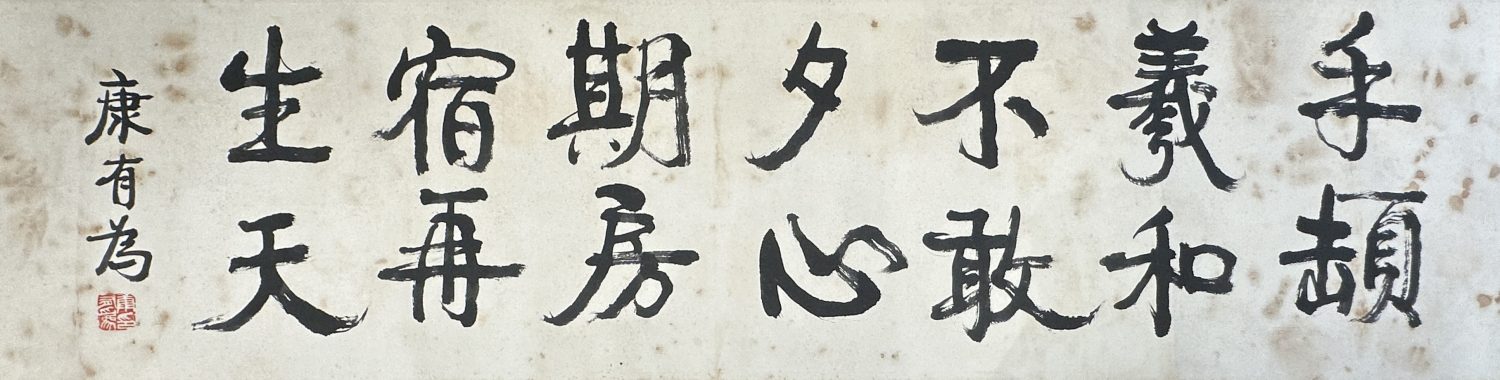 手頓
羲和
不敢
夕心
期房
宿再
生天
康有為